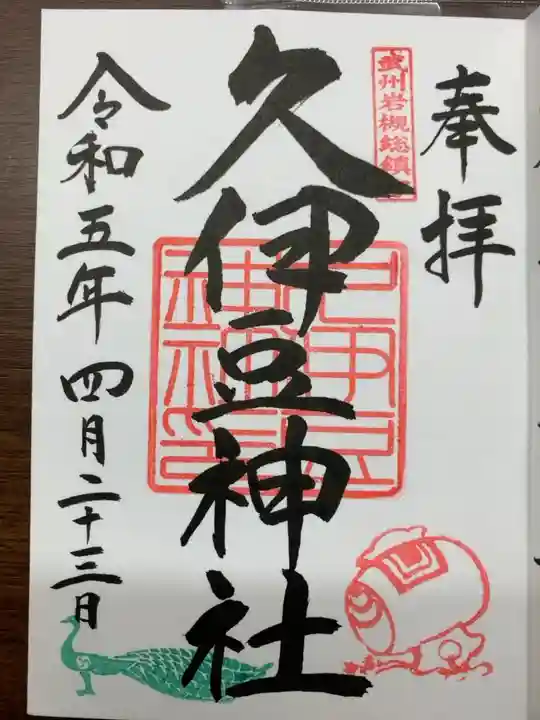 奉拝
武州岩槻総鎮守
久伊豆神社
令和五年四月二十三日